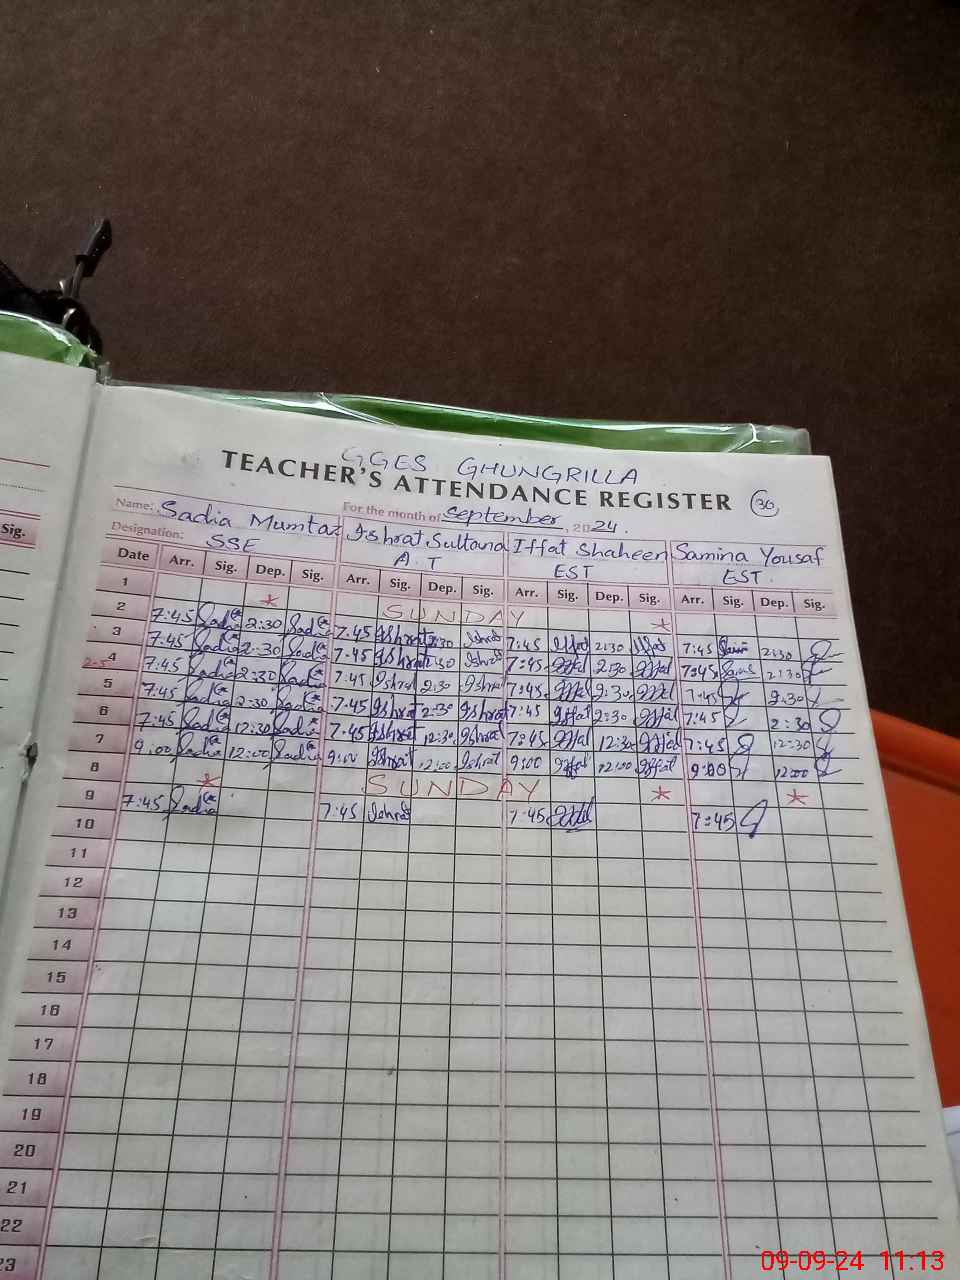 GGES GHUNGRILLA
TEACHER'S ATTENDANCE REGISTER 30
Name: Sadia Mumtaz For the month of September, 2024.
Designation: SSE Ishrat Sultana A.T Iffat Shaheen EST Samina Yousaf EST.
Sig.
Date Arr. Sig. Dep. Sig. Arr. Sig. Dep. Sig. Arr. Sig. Dep. Sig. Arr. Sig. Dep. Sig.
1 SUNDAY
2 7:45 Sadia 2:30 Sadia 7.45 Ishrat 2:30 Ishrat 7:45 Iffat 2:30 Iffat 7:45 2:30
3 7:45 Sadia 2:30 Sadia 7.45 Ishrat 2:30 Ishrat 7:45 Iffat 2:30 Iffat 7:45 2:30
4 7:45 Sadia 2:30 Sadia 7:45 Ishrat 2:30 Ishrat 7:45 Iffat 2:30 Iffat 7:45 2:30
5 7:45 Sadia 2:30 Sadia 7.45 Ishrat 2:30 Ishrat 7:45 Iffat 2:30 Iffat 7:45 2:30
6 7:45 Sadia 12:30 Sadia 7.45 Ishrat 12:30 Ishrat 7:45 Iffat 12:30 Iffat 7:45 12:30
7 9:00 Sadia 12:00 Sadia 9:00 Ishrat 12:00 Ishrat 9:00 Iffat 12:00 Iffat 9:00 12:00
8 SUNDAY
9 7:45 Sadia 7:45 Ishrat 7:45 Iffat 7:45
10
11
12
13
14
15
16
17
18
19
20
21
22
23
09-09-24 11:13